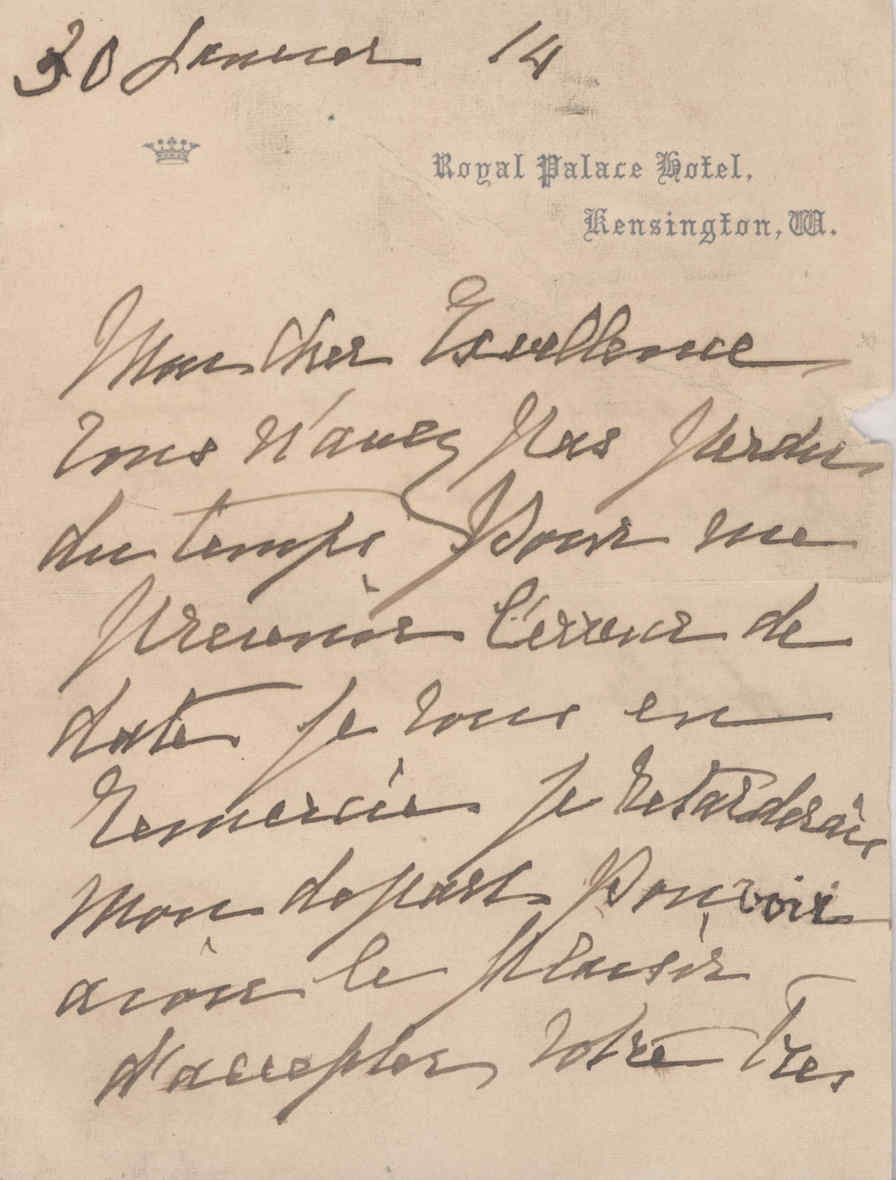 30 Janvier 14
Royal Palace Hotel,
Kensington, W.
Mon Cher Excellence
Vous n'avez pas perdu
du temps pour me
prevenir l'erreur de
date je vous en
remercie je retarderais
mon depart pour voir
avoir le plaisir
d'accepter votre tres